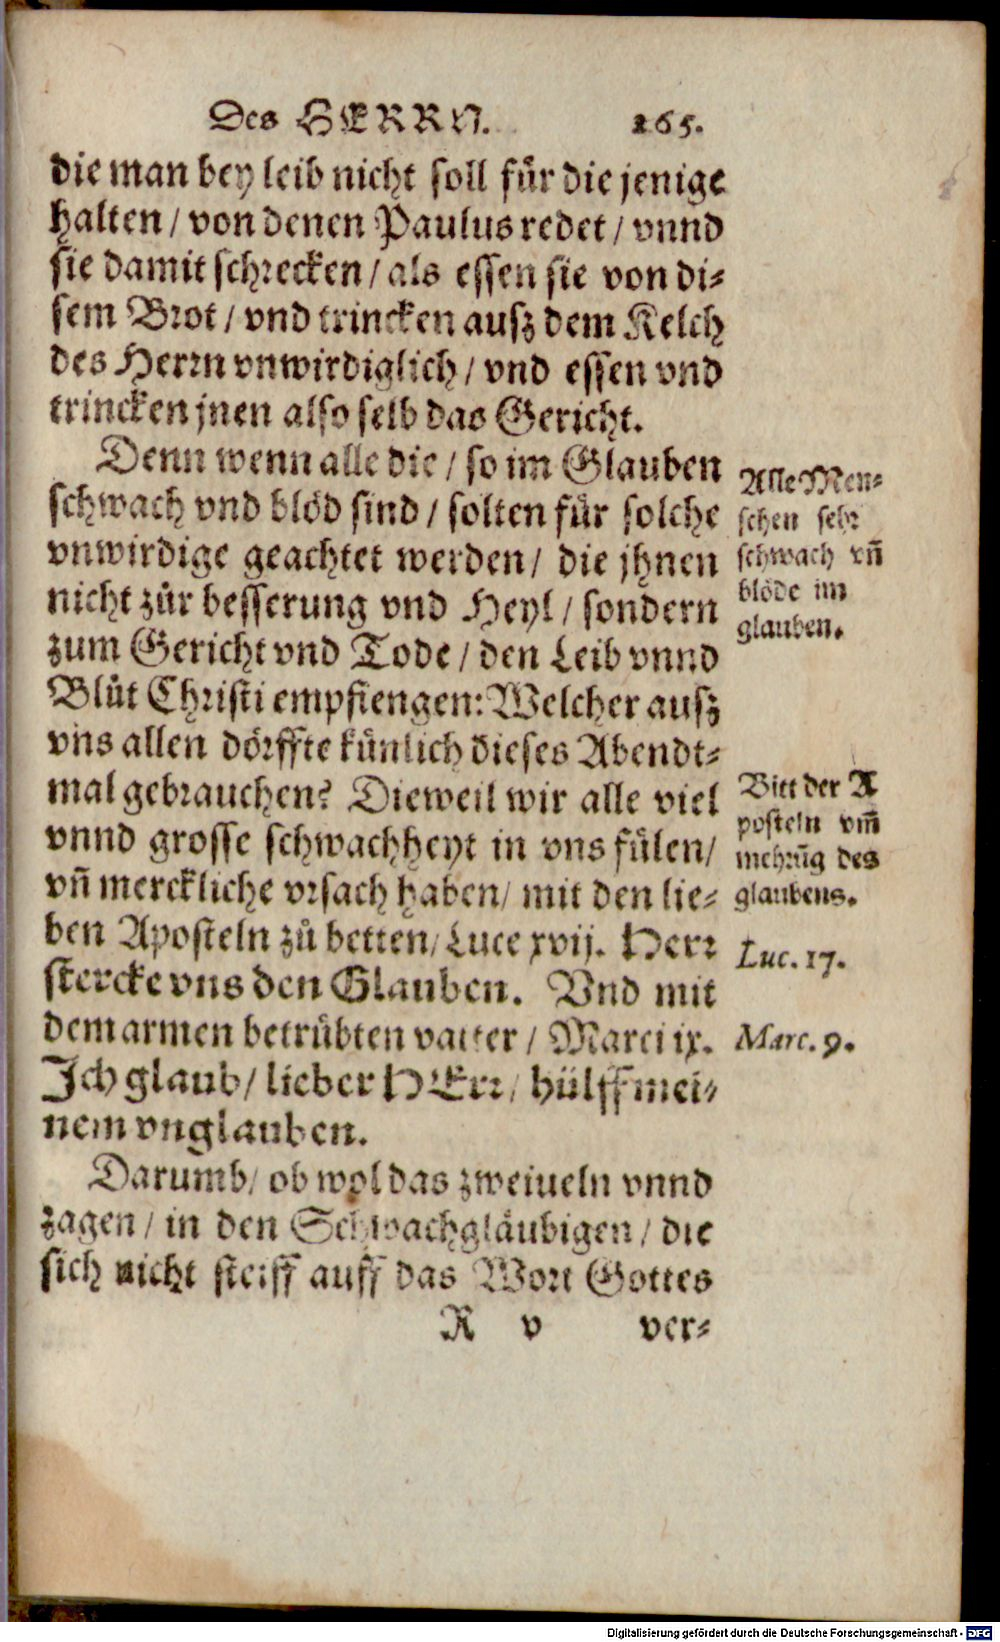 Des HERRN. 265.
die man bey leib nicht soll für die jenige
halten / von denen Paulus redet / vnnd
sie damit schrecken / als essen sie von di-
sem Brot / vnd trincken ausz dem Kelch
des Herrn vnwirdiglich / vnd essen vnd
trincken jnen also selb das Gericht.
Denn wenn alle die / so im Glauben
schwach vnd blöd sind / solten für solche
vnwirdige geachtet werden / die jhnen
nicht zůr besserung vnd Heyl / sondern
zum Gericht vnd Tode / den Leib vnnd
Blůt Christi empfiengen: Welcher ausz
vns allen dörffte künlich dieses Abendt-
mal gebrauchen? Dieweil wir alle viel
vnnd grosse schwachheyt in vns fülen /
vn̄ merckliche vrsach haben / mit den lie-
ben Aposteln zů betten / Luce xvij. Herr
stercke vns den Glauben. Vnd mit
dem armen betrübten vatter / Marci ix.
Ich glaub / lieber HErr / hülff mei-
nem vnglauben.
Darumb / ob wol das zweiueln vnnd
zagen / in den Schwachgläubigen / die
sich nicht steiff auff das Wort Gottes
R v ver-
Alle Men-
schen sehr
schwach vn̄
blöde im
glauben.
Bitt der A
posteln vm̄
mehrūg des
glaubens.
Luc. 17.
Marc. 9.
Digitalisierung gefördert durch die Deutsche Forschungsgemeinschaft - DFG